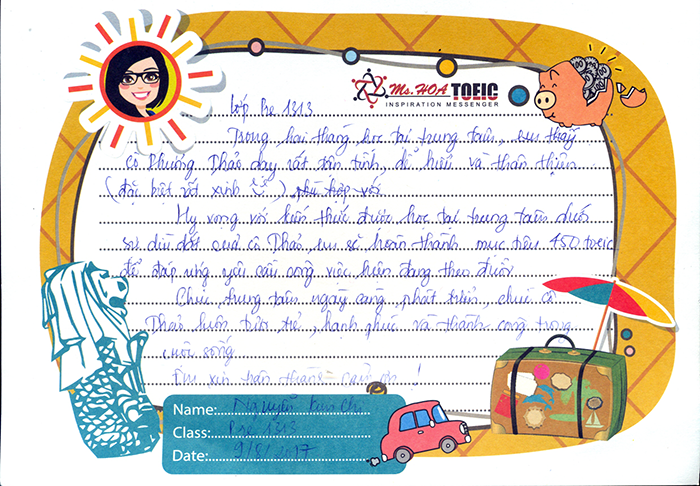 Ms.HOA TOEIC
INSPIRATION MESSENGER
Lớp Pre 1313
Trong hai tháng học tại trung tâm, em thấy
cô Phương Thảo dạy rất tận tình, dễ hiểu và thân thiện
(đặc biệt rất xinh) phù hợp với
Hy vọng với kiến thức được học tại trung tâm dưới
sự dìu dắt của cô Thảo, em sẽ hoàn thành mục tiêu 450 toeic
để đáp ứng yêu cầu công việc hiện đang theo đuổi
Chúc trung tâm ngày càng phát triển, chúc cô
Thảo luôn tươi trẻ, hạnh phúc và thành công trong
cuộc sống
Em xin chân thành cảm ơn!
Name: Nguyễn
Class: Pre 1313
Date: 2017